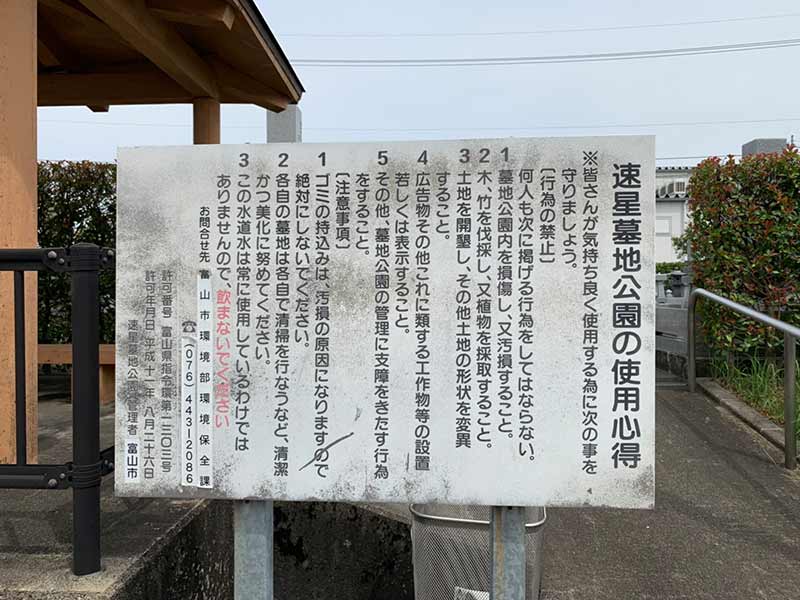 速星墓地公園の使用心得
※皆さんが気持ち良く使用する為に次の事を
守りましょう。
〔行為の禁止〕
何人も次に掲げる行為をしてはならない。
1 墓地公園内を損傷し、又汚損すること。
2 木、竹を伐採し、又植物を採取すること。
3 土地を開墾し、その他土地の形状を変異
すること。
4 広告物その他これに類する工作物等の設置
若しくは表示すること。
5 その他、墓地公園の管理に支障をきたす行為
をすること。
〔注意事項〕
1 ゴミの持込みは、汚損の原因になりますので
絶対にしないでください。
2 各自の墓地は各自で清掃を行なうなど、清潔
かつ美化に努めてください。
3 この水道水は常に使用しているわけでは
ありませんので、飲まないでください
お問合せ先 富山市環境部環境保全課
☎(076)443-2086
許可番号 富山県指令環第一二〇三号
許可年月日 平成十一年 八月二十六日
速星墓地公園管理者 富山市